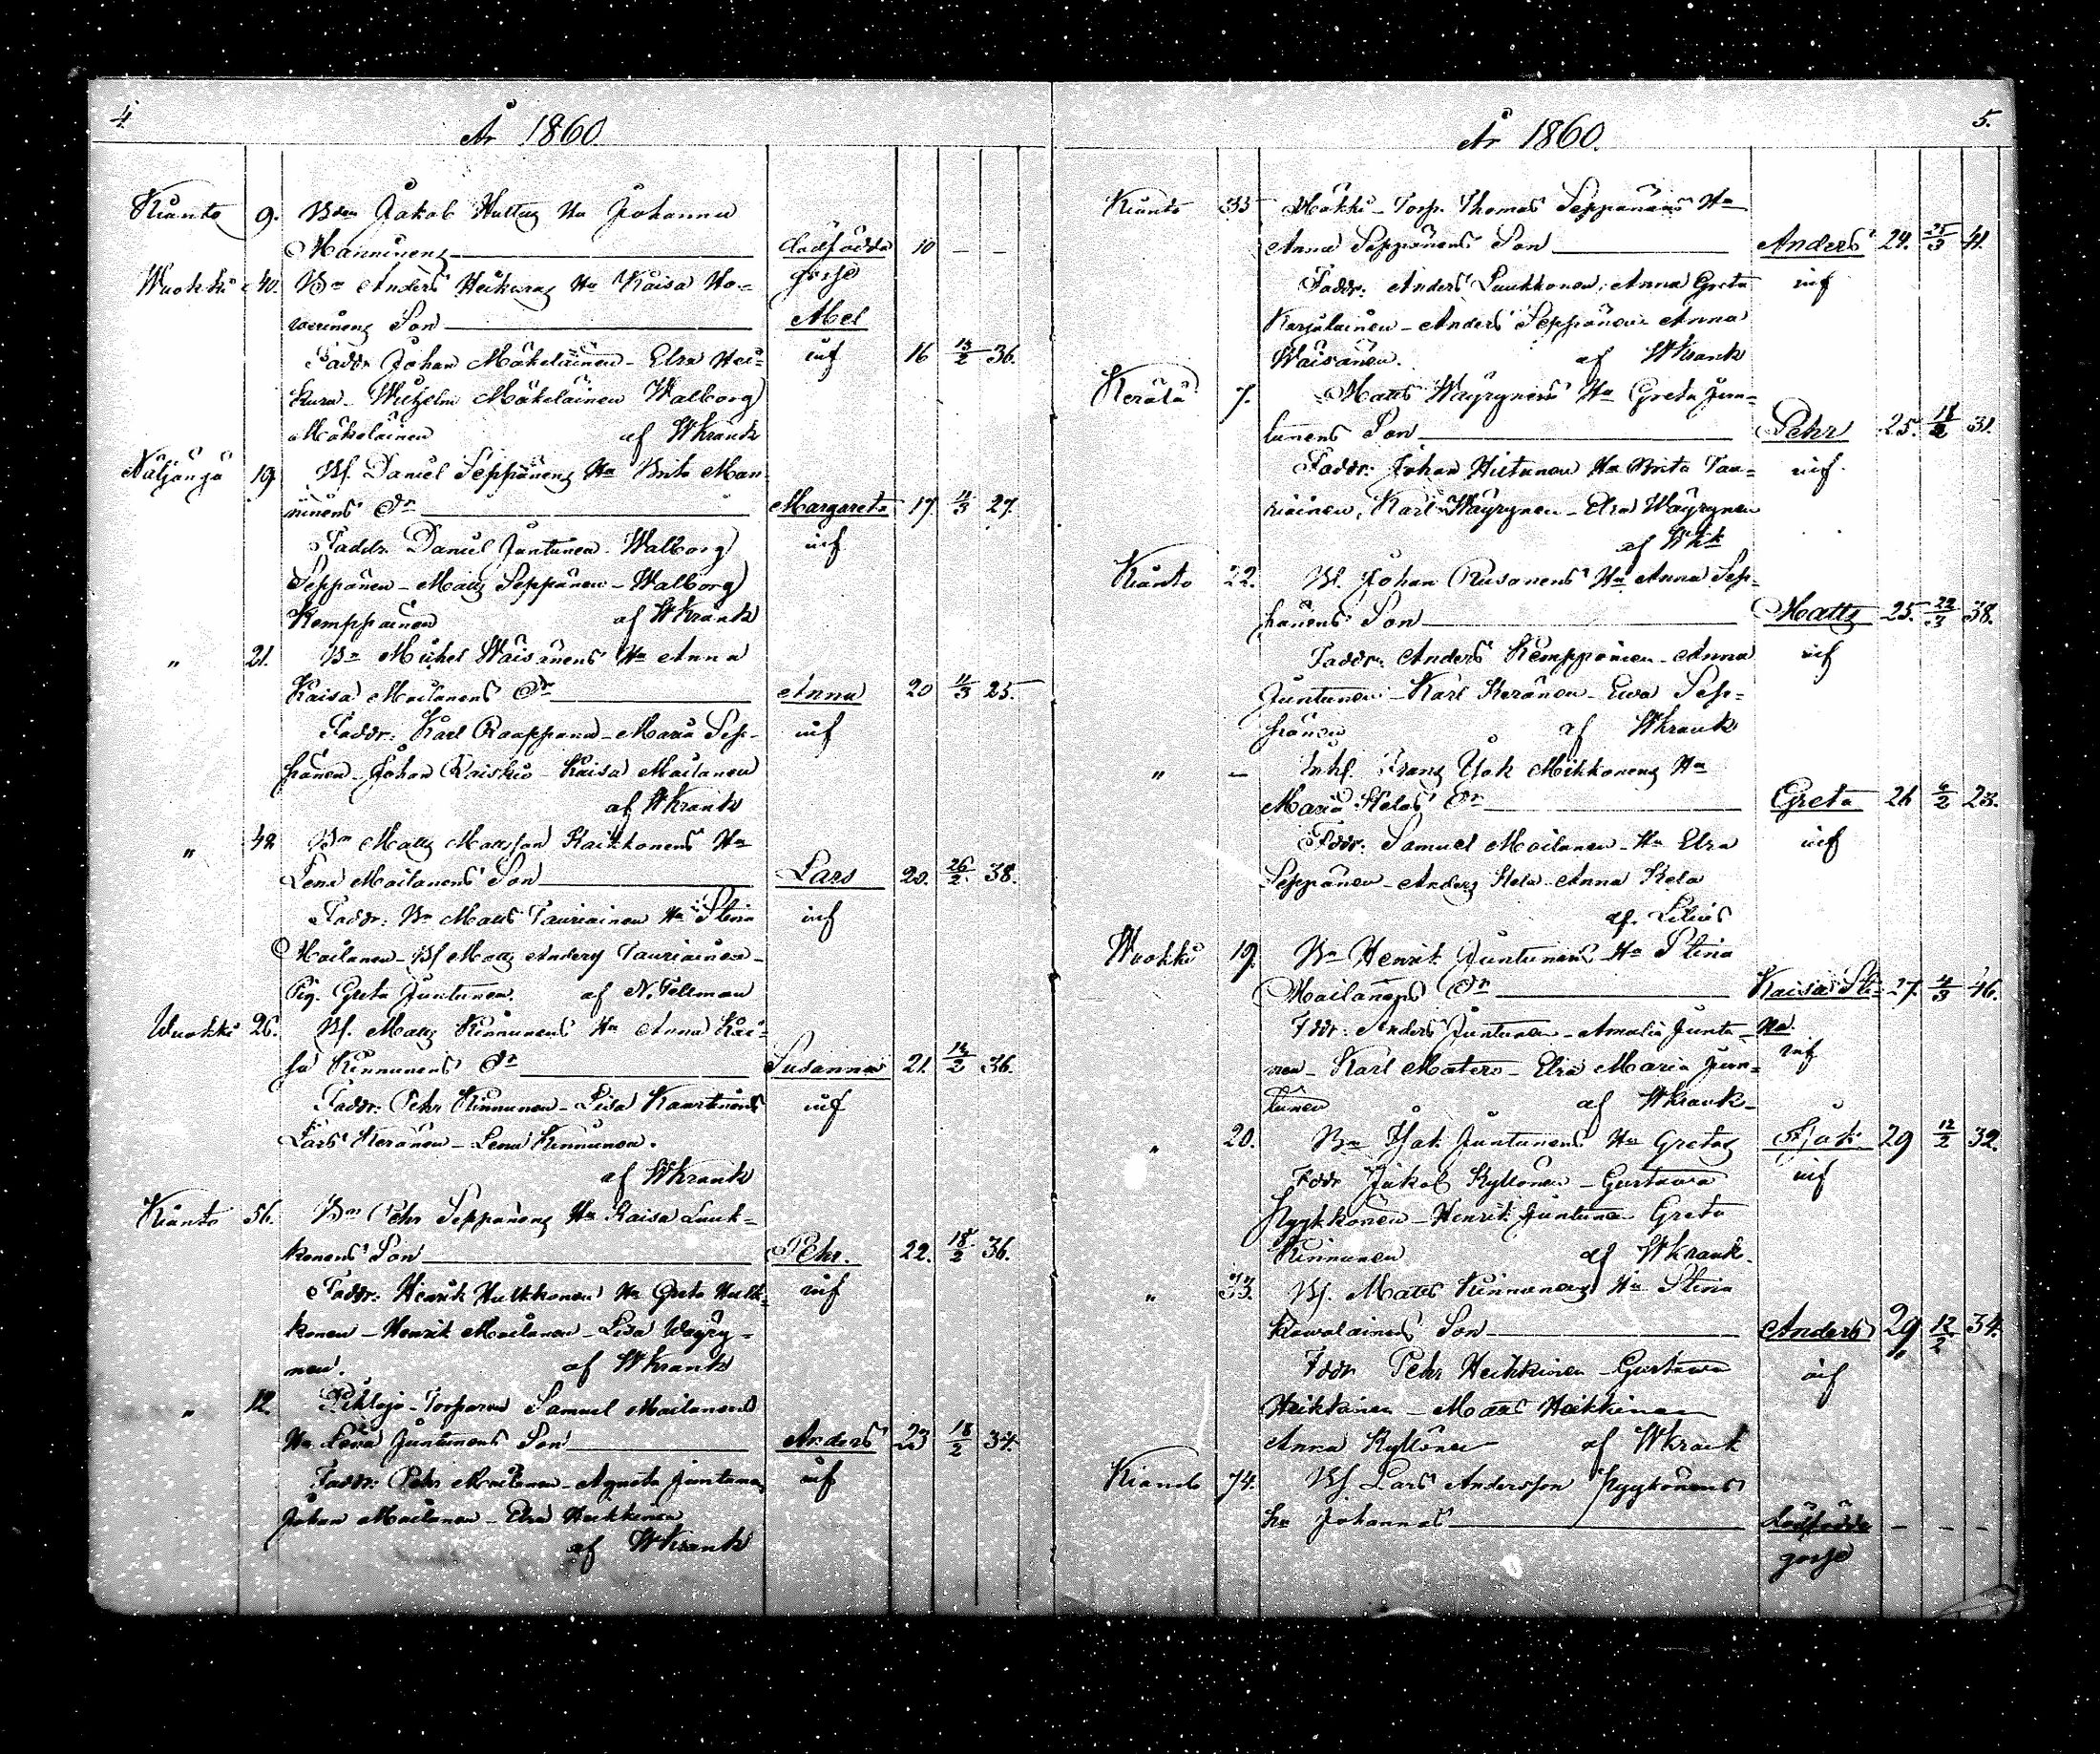 4.
År 1860.
Kianto 9. Bden Jakob Hultug Hu Johanna
Manninens dödfödde 10 — —
gosse
Wuokki 40. Bn Anders Heikuras Hu Kaisa Ho-
vinens Son Abel
Faddr. Johan Mäkeläinen - Elsa Hei- inf 16 13/2 36.
kura - Wilhelm Mäkeläinen Walborg
Mäkeläinen af WKrank
Näljängä 19. Bf. Daniel Seppänens Hu Brita Man-
ninens Dr Margareta 17 11/3 27.
Faddr. Daniel Juntunen - Walborg inf
Seppänen - Matts Seppänen - Walborg
Kemppainen af WKrank
" 21. Bn Michel Wäisänens Hu Anna
Kaisa Moilanens Dr Anna 20 11/3 25.
Faddr: Karl Raappana - Maria Sep- inf
pänen - Johan Raiskio - Kaisa Moilanen
af WKrank
" 42. Bn Matts Matsson Kaikkonens Hu
Lena Moilanens Son Lars 20. 26/2 38.
Faddr: Bn Matts Tauriainen Hu Stina inf
Moilanen - Bf Matts Anders Tauriainen -
Pig. Greta Juntunen. af N. Fellman
Wuokki 26. Bf. Matts Kinnunens Hu Anna Kai-
sa Kinnunens Dr Susanna 21. 14/2 36.
Faddr: Pehr Kinnunen - Lisa inf
Lars Keränen - Lena Kinnunen.
af WKrank
Kianto 56. Bn Pehr Seppänens Hu Kaisa Luuk-
konens Son Pehr. 22. 18/2 36.
Faddr: Henrik Hulkkonen Hu Greta Hulk- inf
konen - Henrik Moilanen - Lisa Wäyry-
nen. af WKrank
" 12. Torparen Samuel Moilanens
Hu Lena Juntunens Son Anders 23 18/2 34.
Faddr: Pehr Moilanen - Agneta Juntunen inf
Johan Moilanen - Elsa Heikkinen
af WKrank
5.
År 1860.
Kianto 35 Mökki-Torp. Thomas Seppänens Hu
Anna Seppänens Son Anders 24. 25/3 41.
Faddr: Anders Luukkonen, Anna Greta inf
Karjalainen - Anders Seppänen Anna
Wäisänen. af WKrank
Kerälä 7. Matts Wäyrynens Hu Greta Jun-
tunens Son Pehr 25. 18/2 31.
Faddr: Johan Hiltunen Hu Brita Tau- inf
riainen, Karl Wäyrynen - Elsa Wäyrynen
af WKk
Kianto 22. Bf. Johan Rusanens Hu Anna Sep-
pänens Son Matts 25. 22/3 38.
Faddr: Anders Kemppainen - Anna inf
Juntunen - Karl Keränen - Ewa Sep-
pänen af WKrank
" — Inh. Frans Isak Mikkonens Hu
Maria Kelas Dr Greta 26 6/2 23.
Faddr: Samuel Moilanen - Hu Elsa inf
Seppänen - Anders Kela - Anna Kela
af. Lilius
Wuokki 19. Bn Henrik Juntunens Hu Stina
Moilanens Dr Kaisa Sti- 27. 4/3 46.
Fddr: Anders Juntunen - Amalia Juntu- na.
nen - Karl Matero - Elsa Maria Jun- inf
tunen af WKrank -
" 20. Bn Isak Juntunens Hu Gretas Isak 29 12/2 32.
Fddr Jakob Kyllönen - Gustawa inf
Pyykkönen - Henrik Juntunen Greta
Kinnunen af WKrank.
" 33. Bf. Matts Kinnunens Hu Stina
Kowalainens Son Anders 29 12/2 34.
Fddr Pehr Heikkinen - Gustawa inf
Heikkinen - Matts Heikkinen
Anna Kyllönen af WKrank
Kianto 74. Bf Lars Andersson Pyykönens
hu Johannas dödfödde — — —
gosse